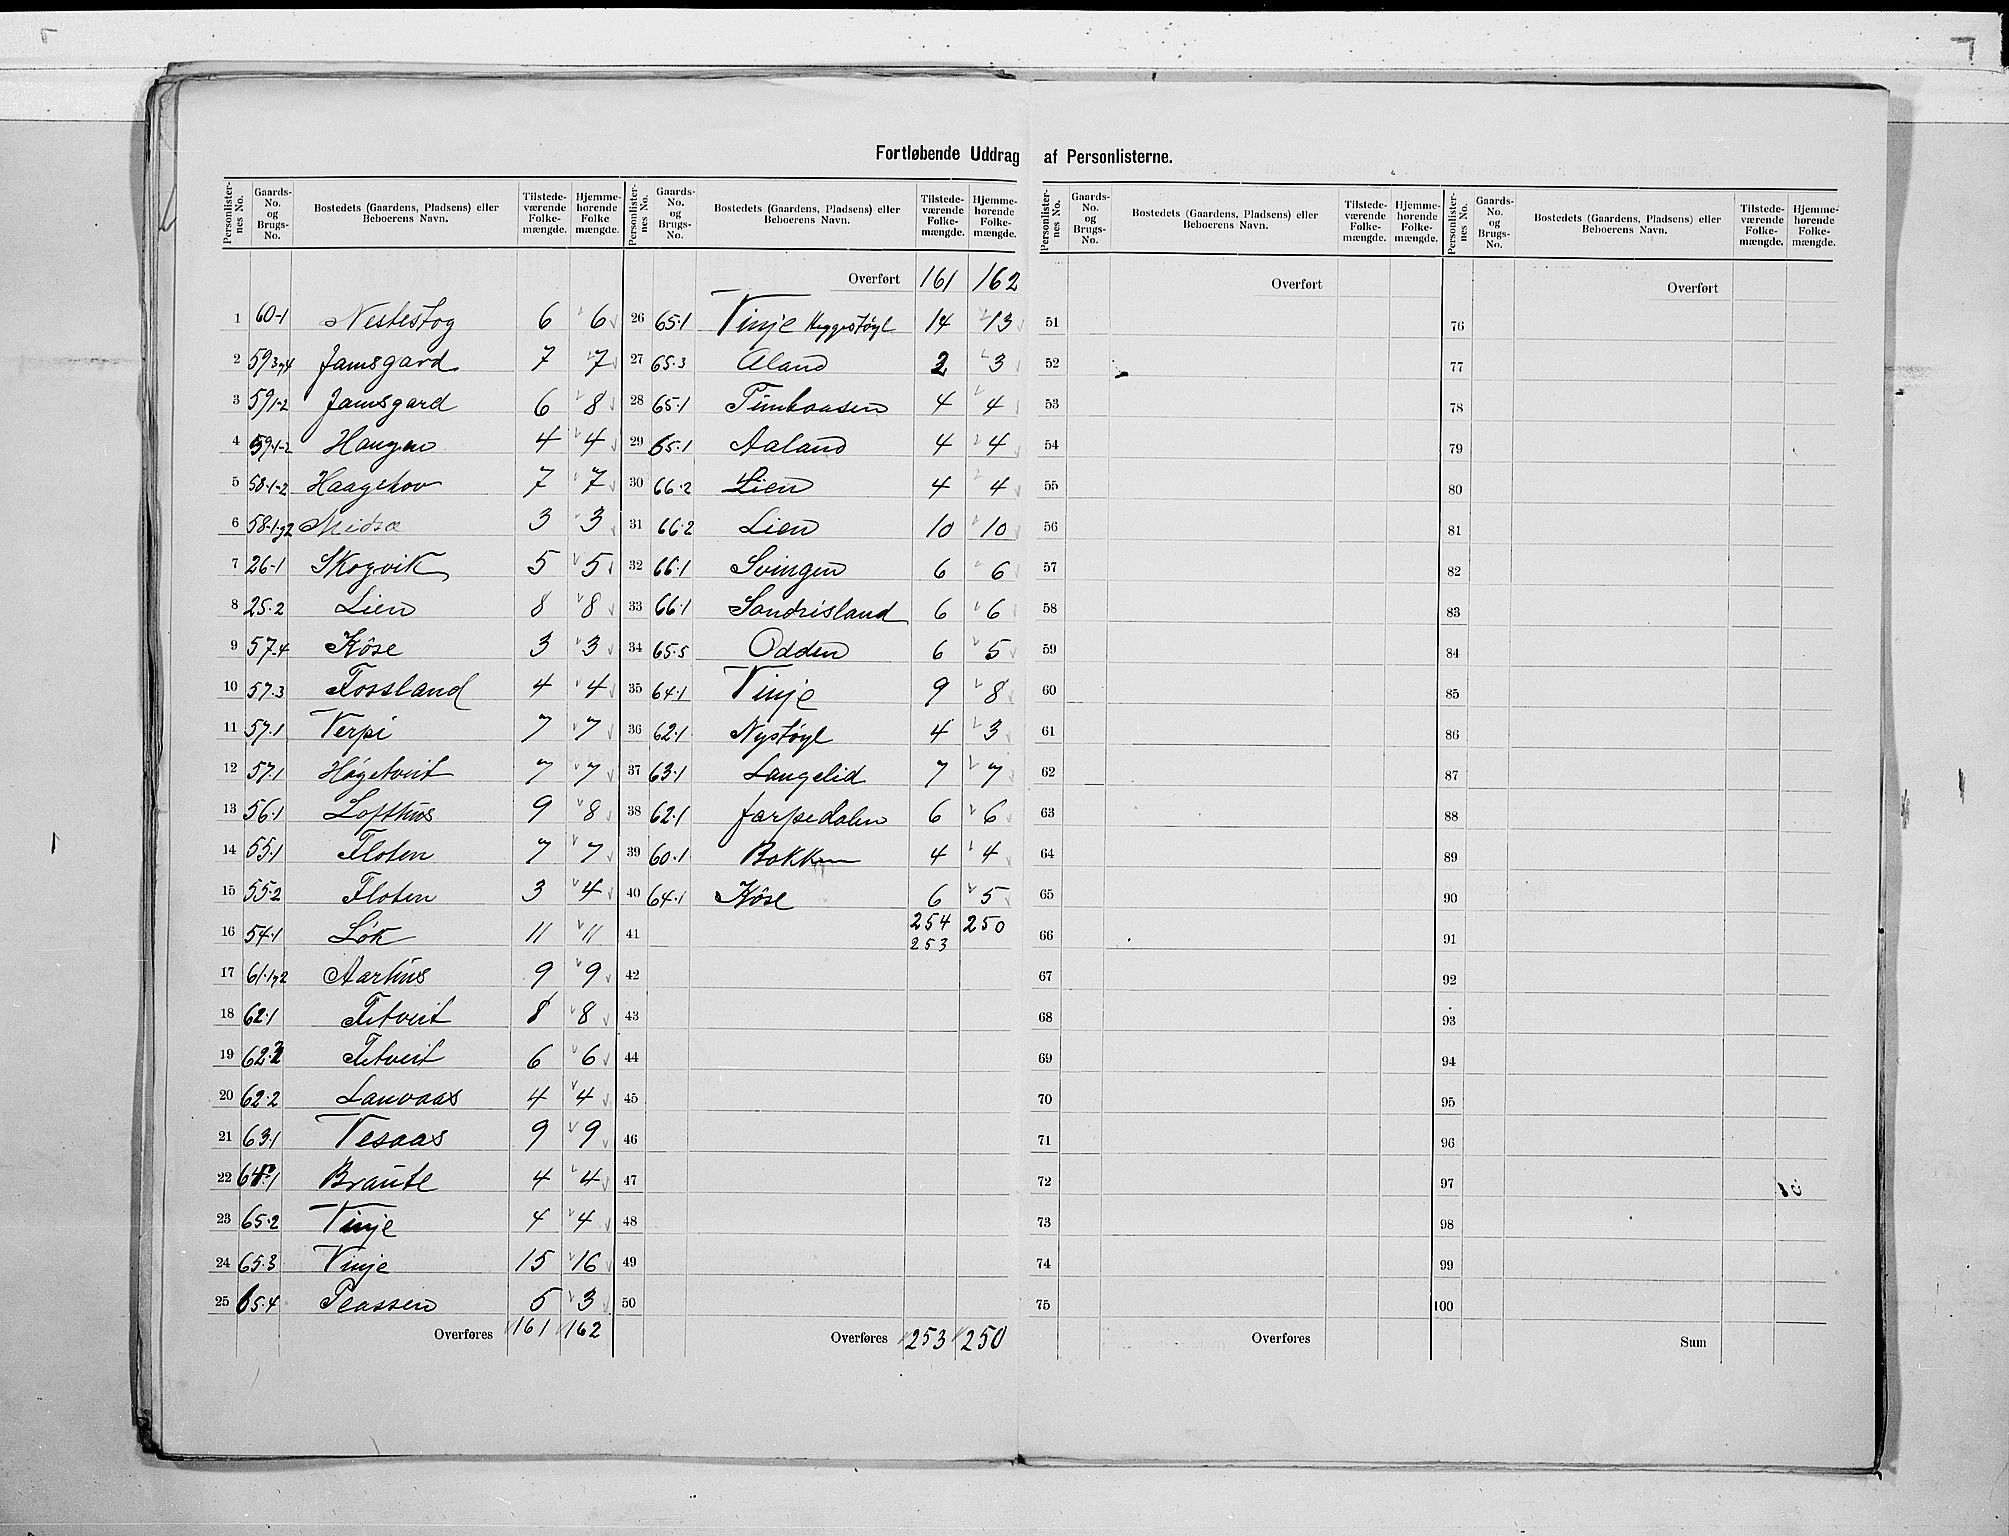 Fortløbende Uddrag af Personlisterne.
Personlisternes No. Gaards-No. og Brugs-No. Bostedets (Gaardens, Pladsens) eller Beboerens Navn. Tilstedeværende Folkemængde. Hjemmehørende Folkemængde.
1 60-1 Nestestog 6 6
2 59 3og4 Jamsgard 7 7
3 59 1-2 Jamsgard 6 8
4 59 1-2 Haugen 4 4
5 58-1-2 Haagetov 7 7
6 58-1 og 2 Midsæ 3 3
7 26-1 Skogvik 5 5
8 25-2 Lien 8 8
9 57-4 Kôse 3 3
10 57-3 Fossland 4 4
11 57-1 Verpi 7 7
12 57-1 Høgetveit 7 7
13 56-1 Lofthus 9 8
14 55-1 Floten 7 7
15 55-2 Floten 3 4
16 54-1 Lôk 11 11
17 61-1og2 Aarhus 9 9
18 62-1 Fitveit 8 8
19 62-2 Fitveit 6 6
20 62-2 Lauvaas 4 4
21 63-1 Vesaas 9 9
22 -1 Braute 4 4
23 65-2 Vinje 4 4
24 65-3 Vinje 15 16
25 65-4 Plassen 5 3
Overføres 161 162
Personlisternes No. Gaards-No. og Brugs-No. Bostedets (Gaardens, Pladsens) eller Beboerens Navn. Tilstedeværende Folkemængde. Hjemmehørende Folkemængde.
Overført 161 162
26 65-1 Vinje Heggestøyl 14 13
27 65-3 Aland 2 3
28 65-1 4 4
29 65-1 Aaland 4 4
30 66-2 Lien 4 4
31 66-2 Lien 10 10
32 66-1 Svingen 6 6
33 66-1 Sondrisland 6 6
34 65-5 Odden 6 5
35 64-1 Vinje 9 8
36 62-1 Nystøyl 4 3
37 63-1 Langelid 7 7
38 62-1 Jarpedalen 6 6
39 60-1 Bakken 4 4
40 64-1 Kôse 6 5
254 250
41 253
42
43
44
45
46
47
48
49
50
Overføres 253 250
Personlisternes No. Gaards-No. og Brugs-No. Bostedets (Gaardens, Pladsens) eller Beboerens Navn. Tilstedeværende Folkemængde. Hjemmehørende Folkemængde.
Overført
51
52
53
54
55
56
57
58
59
60
61
62
63
64
65
66
67
68
69
70
71
72
73
74
75
Overføres
Personlisternes No. Gaards-No. og Brugs-No. Bostedets (Gaardens, Pladsens) eller Beboerens Navn. Tilstedeværende Folkemængde. Hjemmehørende Folkemængde.
Overført
76
77
78
79
80
81
82
83
84
85
86
87
88
89
90
91
92
93
94
95
96
97
98
99
100
Sum